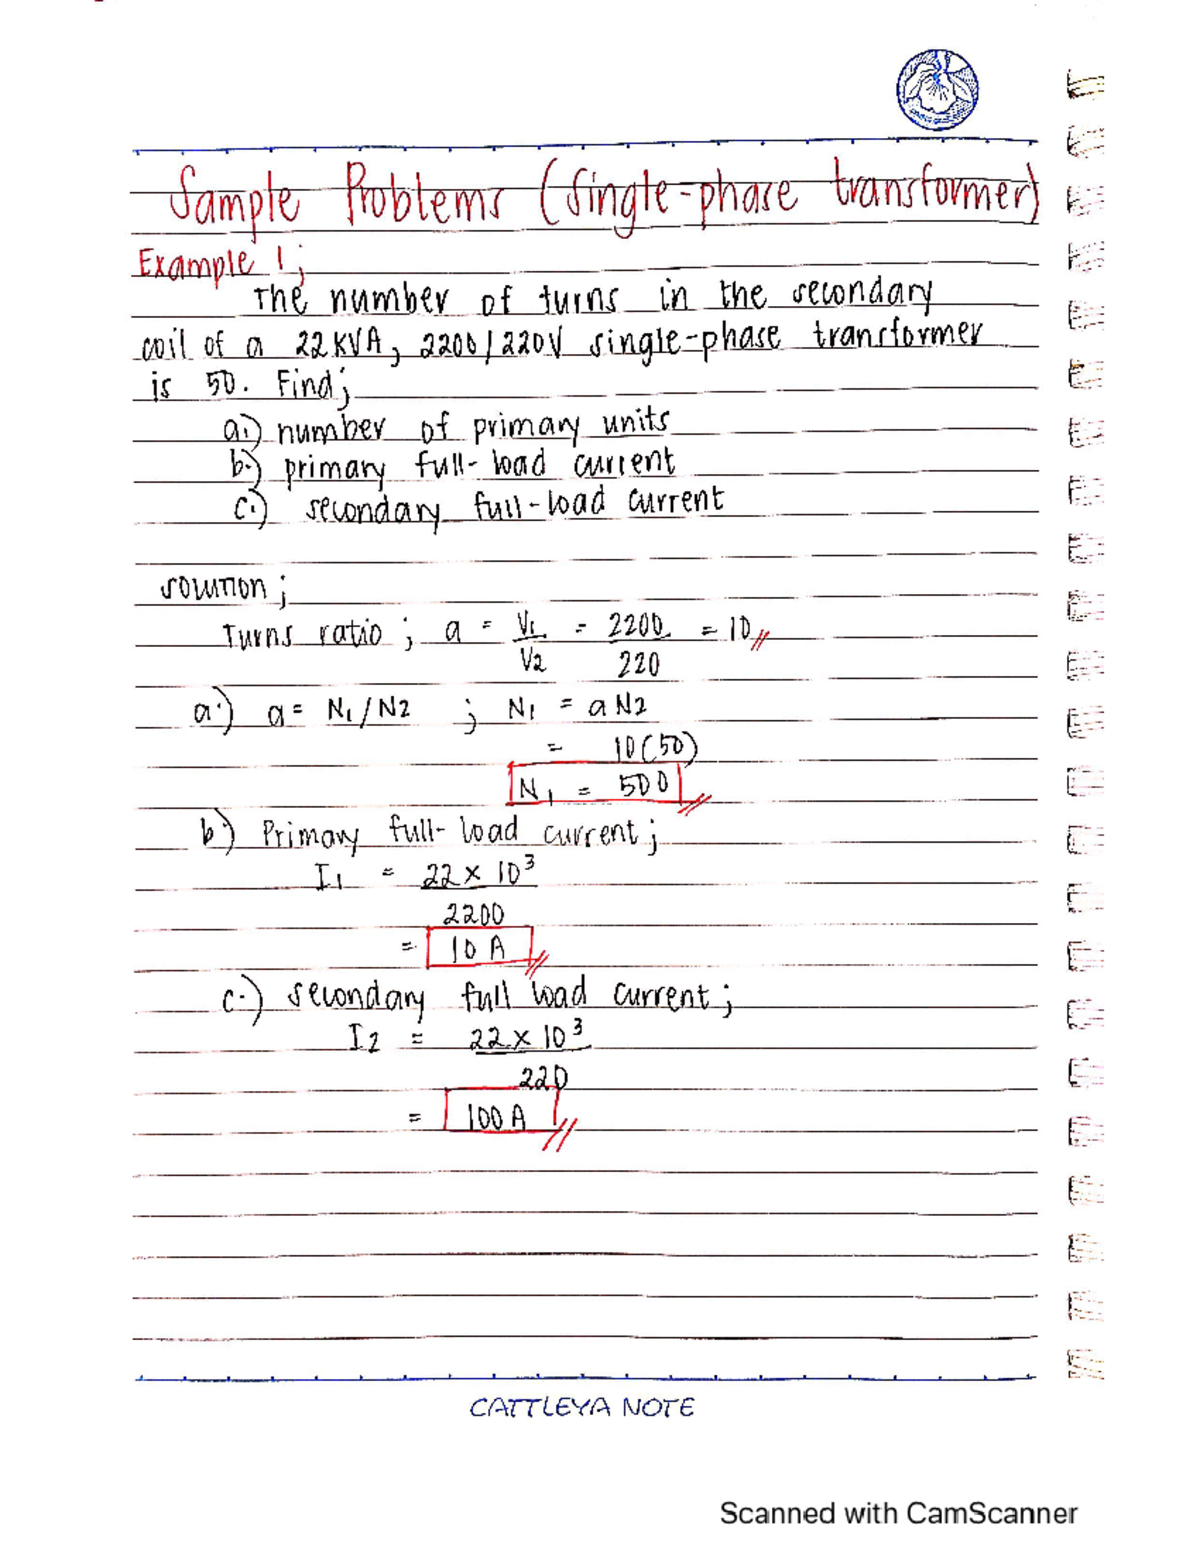 Sample Problems (Single-phase transformer)
Example 1;
The number of turns in the secondary
coil of a 22KVA, 2200/220V single-phase transformer
is 50. Find;
a.) number of primary units
b.) primary full-load current
c.) secondary full-load current
solution;
Turns ratio; a = V1 = 2200 = 10
V2 220
a.) a = N1/N2 ; N1 = aN2
= 10(50)
N1 = 500
b.) Primary full-load current;
I1 = 22 x 10³
2200
= 10 A
c.) secondary full load current;
I2 = 22 x 10³
220
= 100 A
CATTLEYA NOTE
Scanned with CamScanner